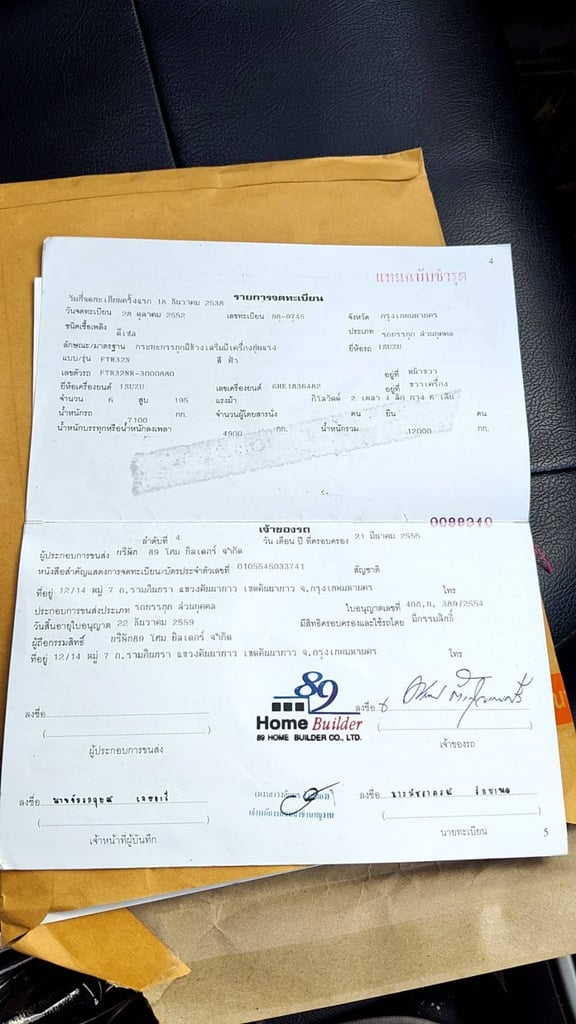 4
แทนฉบับชำรุด
รายการจดทะเบียน
วันที่จดทะเบียนครั้งแรก 18 ธันวาคม 2538
วันจดทะเบียน 28 ตุลาคม 2552 เลขทะเบียน 98-9745 จังหวัด กรุงเทพมหานคร
ชนิดเชื้อเพลิง ดีเซล ประเภท รถบรรทุก ส่วนบุคคล
ลักษณะ/มาตรฐาน กระบะบรรทุกมีข้างเสริมมีเครื่องทุ่นแรง ยี่ห้อรถ ISUZU
แบบ/รุ่น FTR32N สี ฟ้า
เลขตัวรถ FTR32NR-3000880 อยู่ที่ หน้าขวา
ยี่ห้อเครื่องยนต์ ISUZU เลขเครื่องยนต์ 6HE1836482 อยู่ที่ ขวาเครื่อง
จำนวน 6 สูบ 195 แรงม้า กิโลวัตต์ 2 เพลา 4 ล้อ ยาง 6 เส้น
น้ำหนักรถ 7100 กก. จำนวนผู้โดยสารนั่ง คน ยืน คน
น้ำหนักบรรทุกหรือน้ำหนักลงเพลา 4900 กก. น้ำหนักรวม 12000 กก.
เจ้าของรถ
ลำดับที่ 4 วัน เดือน ปี ที่ครอบครอง 21 มีนาคม 2555
ผู้ประกอบการขนส่ง บริษัท 89 โฮม บิลเดอร์ จำกัด
หนังสือสำคัญแสดงการจดทะเบียน/บัตรประจำตัวเลขที่ 0105545033741 สัญชาติ
ที่อยู่ 12/14 หมู่ 7 ถ.รามอินทรา แขวงคันนายาว เขตคันนายาว จ.กรุงเทพมหานคร โทร
ประกอบการขนส่งประเภท รถบรรทุก ส่วนบุคคล ใบอนุญาตเลขที่ 4กท.บ. 389/2554
วันสิ้นอายุใบอนุญาต 22 ธันวาคม 2559 มีสิทธิครอบครองและใช้รถโดย มีกรรมสิทธิ์
ผู้ถือกรรมสิทธิ์ บริษัท89 โฮม บิลเดอร์ จำกัด
ที่อยู่ 12/14 หมู่ 7 ถ.รามอินทรา แขวงคันนายาว เขตคันนายาว จ.กรุงเทพมหานคร โทร
89
Home Builder
89 HOME BUILDER CO., LTD.
ลงชื่อ ลงชื่อ
ผู้ประกอบการขนส่ง เจ้าของรถ
ลงชื่อ ลงชื่อ
เจ้าหน้าที่ผู้บันทึก นายทะเบียน
5